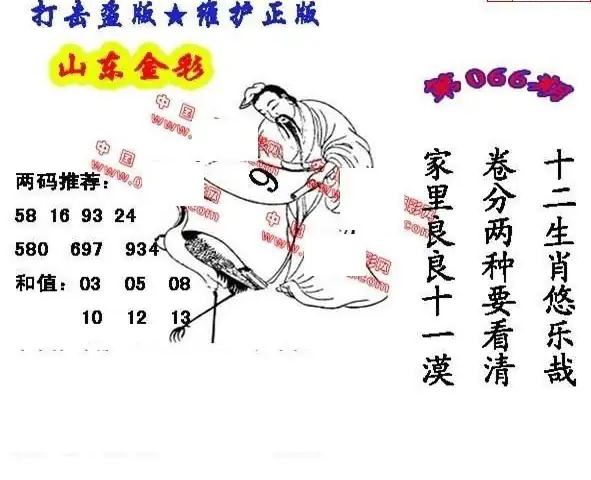 打击盗版★维护正版
山东金彩
第066期
中国
www.
彩网
.com
中国
www.
两码推荐：
58 16 93 24
580 697 934
和值：03 05 08
10 12 13
9
中国
www.
彩网
.com
十二生肖悠乐哉
卷分两种要看清
家里良良十一漠